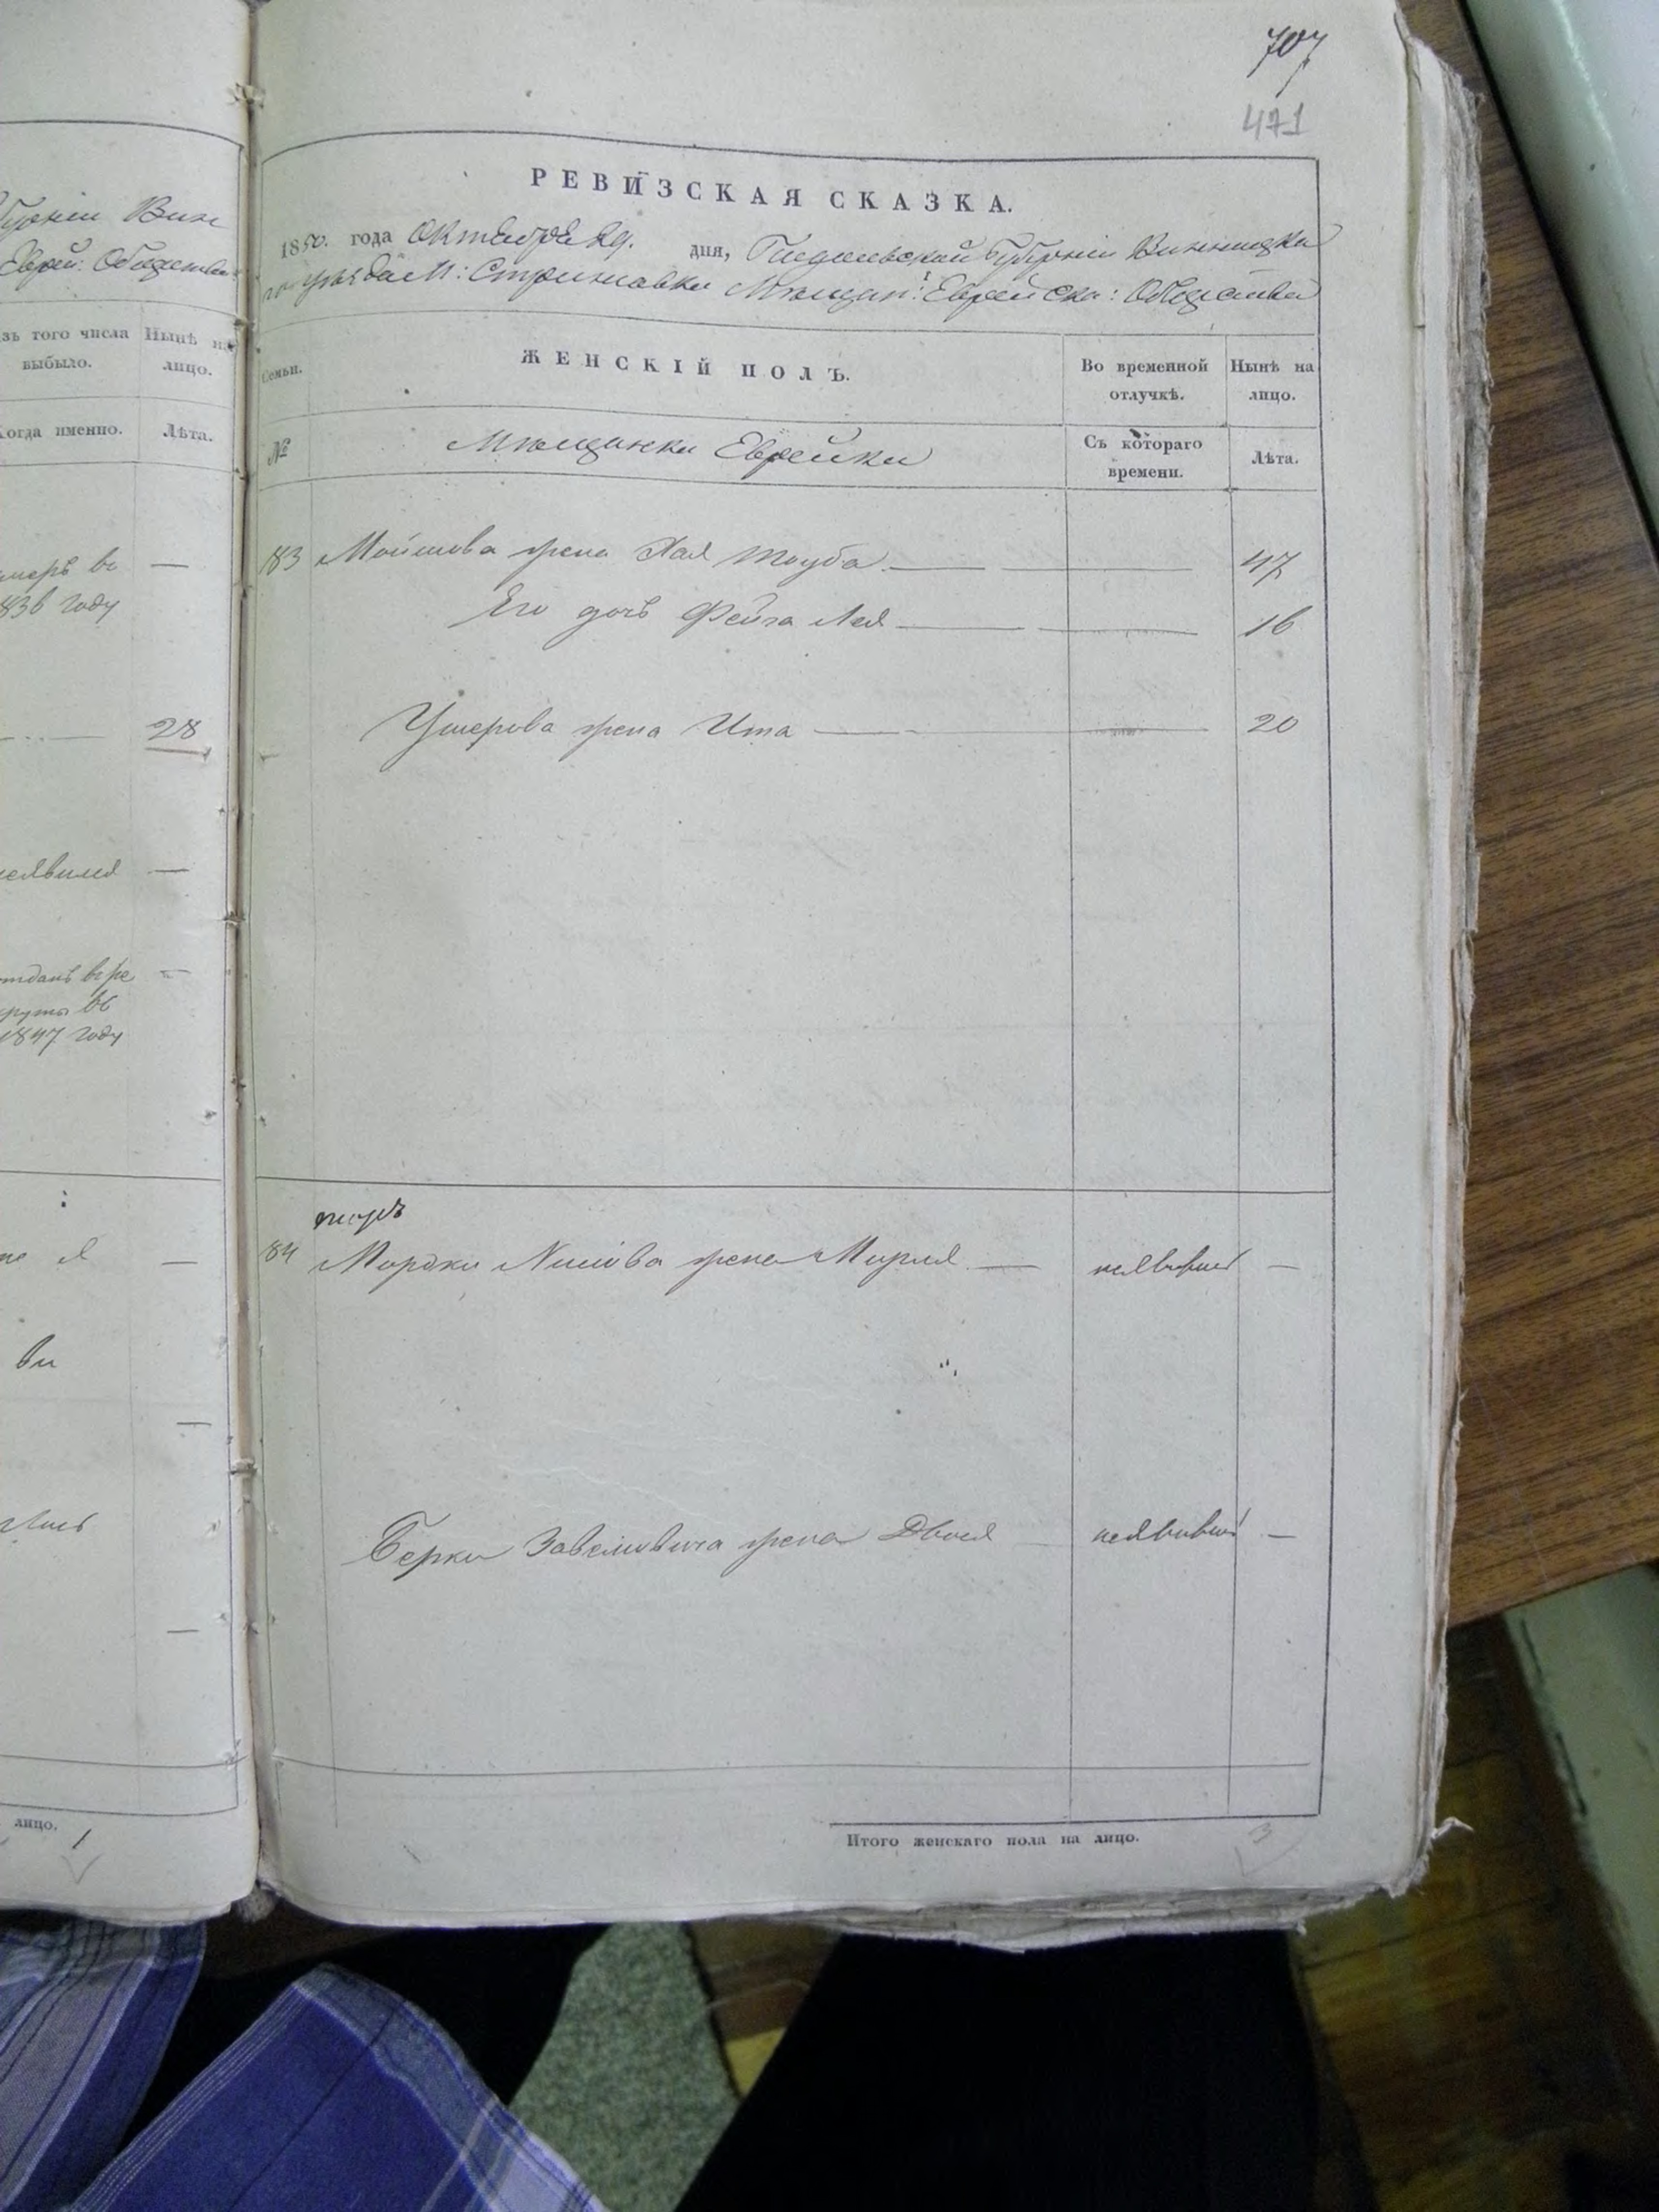 Губерніи Вин
Еврей: Общества
зъ того числа Нынѣ на
выбыло. лицо.
Когда именно. Лѣта.
умеръ въ —
1836 году
28
неявился —
отданъ в ре —
круты въ
1847 году
—
ви
—
—
лицо.
1
707
471
РЕВИЗСКАЯ СКАЗКА.
1850. года Октября 29. дня, Подольской Губерніи Винницка
го уѣзда М: Стрижавки Мѣщан: Еврейска: Общества
Семьи. ЖЕНСКІЙ ПОЛЪ. Во временной Нынѣ на
отлучкѣ. лицо.
№ Мѣщанки Еврейки Съ котораго Лѣта.
времени.
183 Мошкова жена Хая Тауба — — 47
Его дочь Фейга Лея — — 16
Ушерова жена Ита — — 20
184 Мордки жена Мирля — неявившя —
Берки жена Двося неявивш —
Итого женскаго пола на лицо. 3